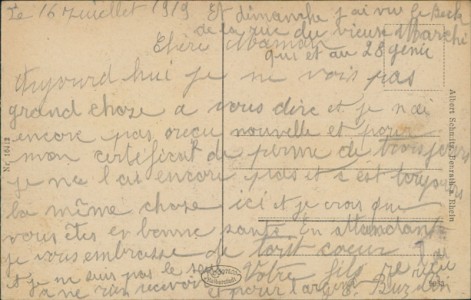 Le 16 Juillet 1919
Et dimanche j ai vu le
de la rue du vieux Marché
qui et au 28 génie
Chère Maman
Aujourd hui je ne vois pas
grand choze a vous dire et je n ai
encore pas reçu nouvelle et pour
mon certificat de ferme de trois jours
je ne l ai encore pas et s est toujours
la même choze ici et je crois que
vous êtes en bonne santé En attendant
je vous embrasse de tout coeur
Votre fils
et je ne suis pas le seul
a ne rien recevoir pour l argent
Nr. 10412
Albert Schmitz, Benrath a. Rhein